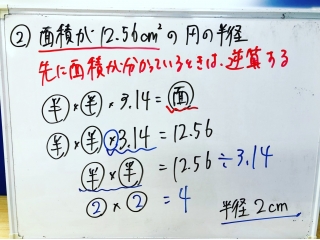 ② 面積が12.56cm²の円の半径
先に面積が分かっているときは、逆算する
半×半×3.14=面
半×半×3.14=12.56
半×半=12.56÷3.14
2×2=4
半径2cm